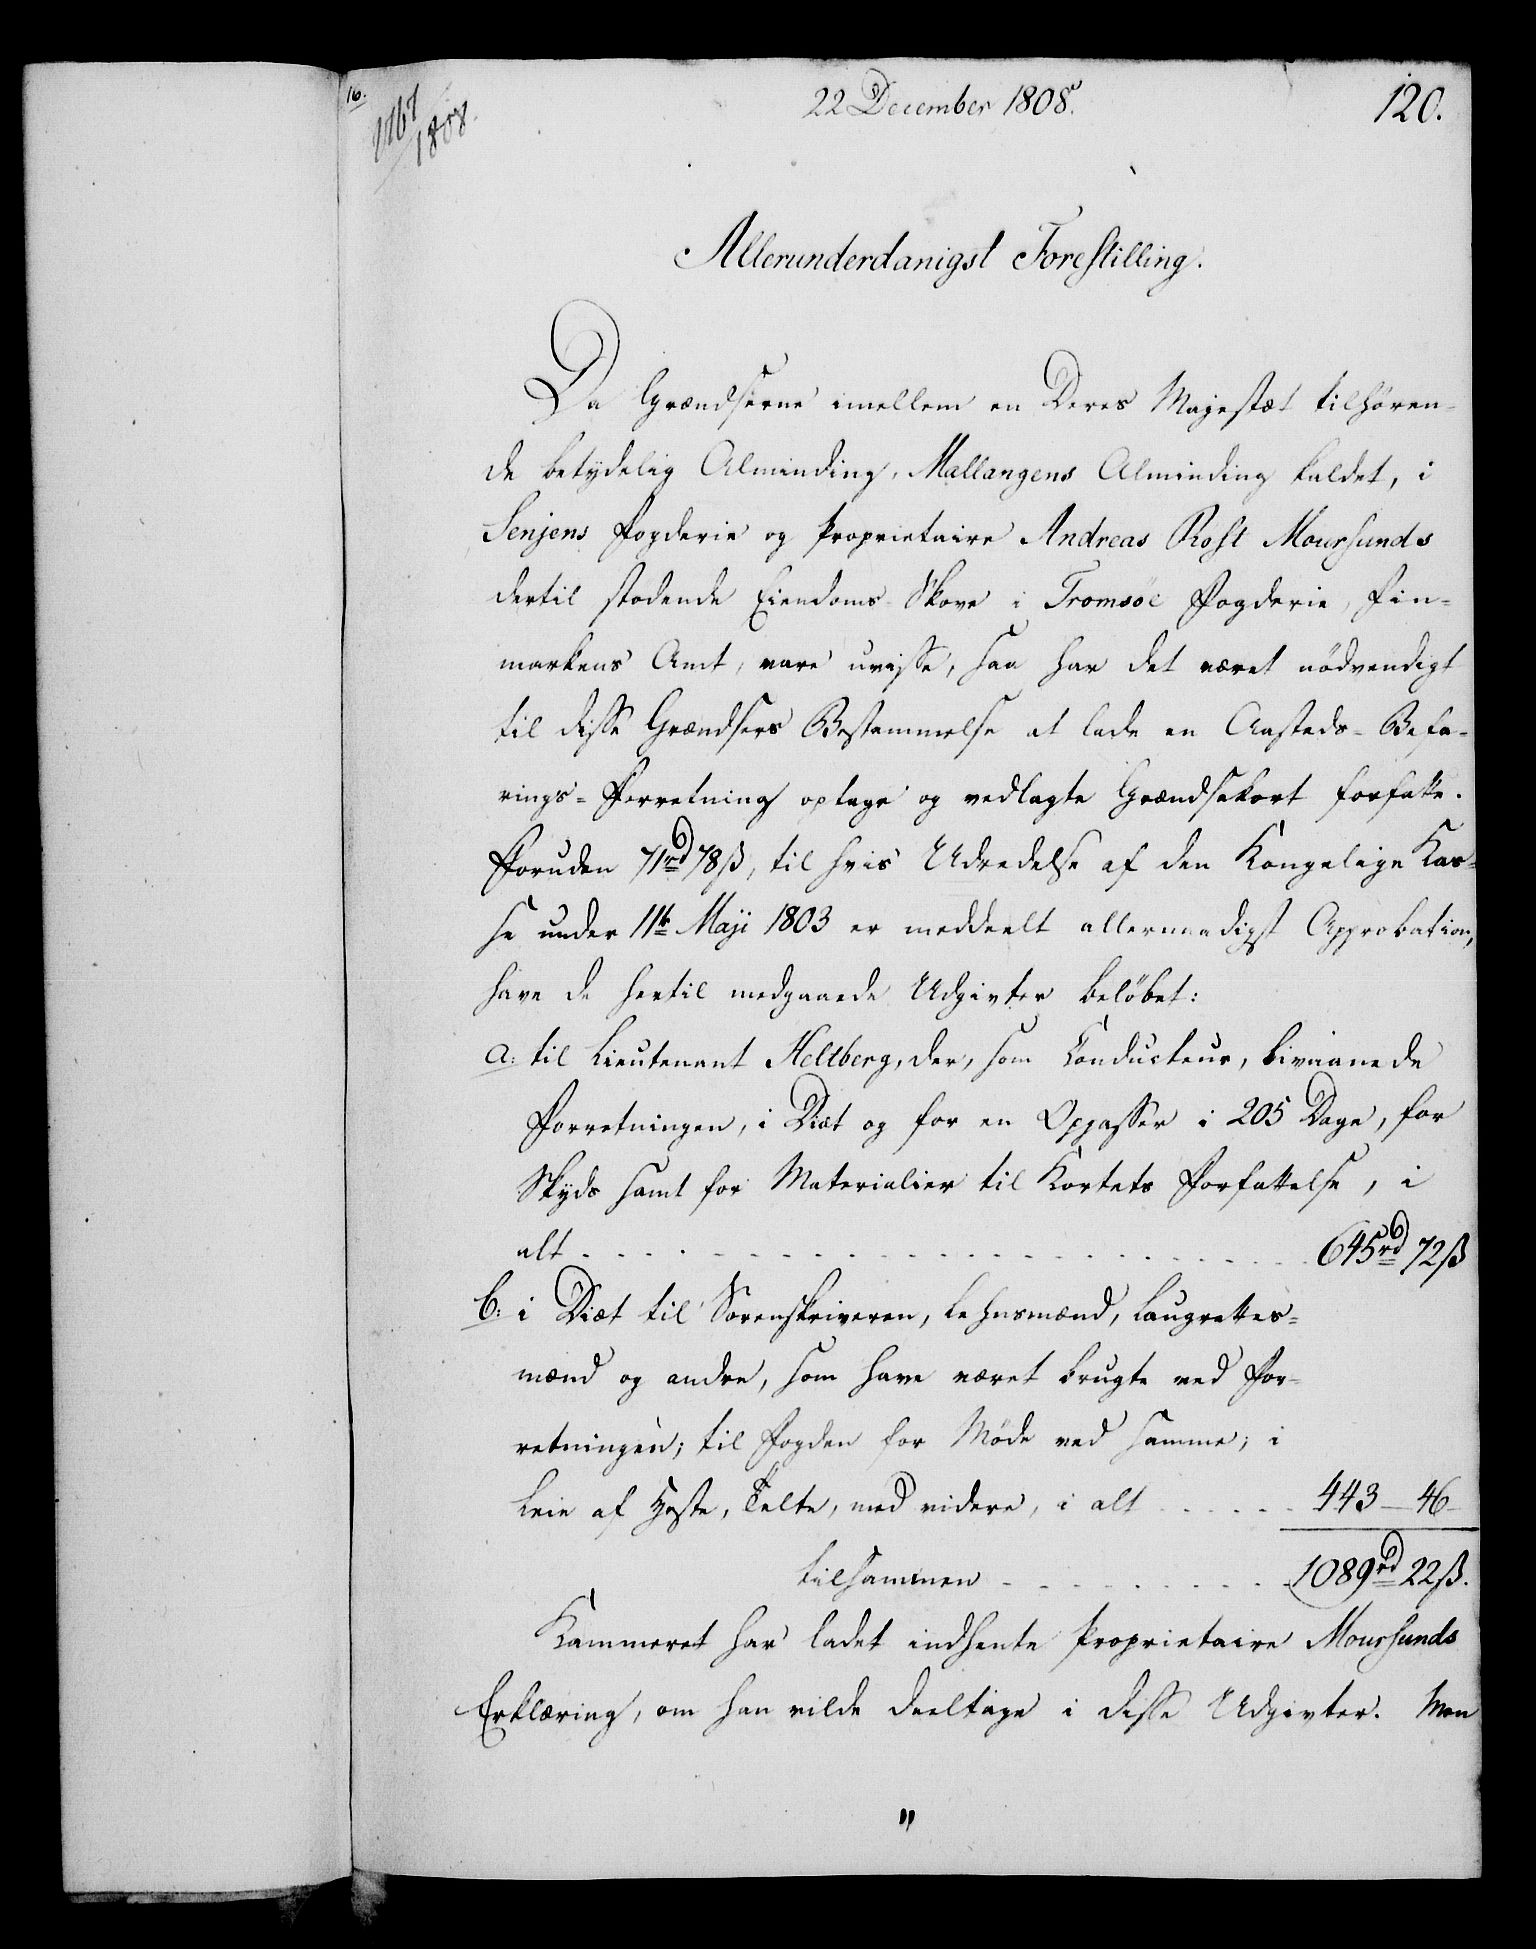 16.
1167
1808.
22 December 1808.
120.
Allerunderdanigst Forestilling.
Da Grændserne imellem en Deres Majestæt tilhören-
de betydelig Alminding, Mallangens Alminding kaldet, i
Senjens Fogderie og Proprietaire Andreas Rost Moursunds
dertil stødende Eiendoms-Skove i Tromsöe Fogderie, Fin-
markens Amt, vare uvisse, saa har det været nödvendigt
til disse Grændsers Bestemmelse at lade en Aasteds-Befa-
rings-Forretning optage og vedlagte Grændsekort forfatte.
Foruden 71rd 78ß, til hvis Udredelse af den Kongelige Kas-
se under 11te Maji 1803 er meddeelt allernaadigst Approbation,
have de hertil medgaaede Udgivter belöbet:
a: til Lieutenant Heltberg, der, som Conducteur, bivaanede
Forretningen, i Diæt og for en Oppasser i 205 Dage, for
Skyds samt for Materialier til Kortets Forfattelse, i
alt . . . . . . . . . . 645rd 72ß
b: i Diæt til Sorenskriveren, Lehnsmænd, Laugrettes-
mænd og andre, som have været brugte ved For-
retningen; til Fogden for Möde ved samme; i
Leie af Heste, Telte, med videre, i alt . . . . . 443 — 46 —
tilsammen . . . . . . . . 1089rd 22ß.
Kammeret har ladet indhente Proprietaire Moursunds
Erklæring, om han vilde deeltage i disse Udgivter. Men
"